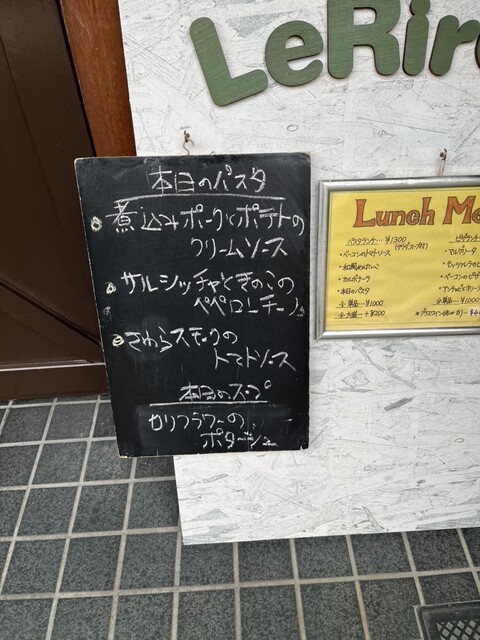 LeRir
本日のパスタ
煮込みポークとポテトの
クリームソース
サルシッチャときのこの
ペペロンチーノ
さわらスモークの
トマトソース
本日のスープ
カリフラワーの
ポタージュ
Lunch Me
パスタランチ…¥1300
(サラダ、スープ付)
・ベーコンのトマトソース
・和風めんたいこ
・カルボナーラ
・本日のパスタ
単品…¥1000
大盛…+¥200
ピザランチ
・マルゲリータ